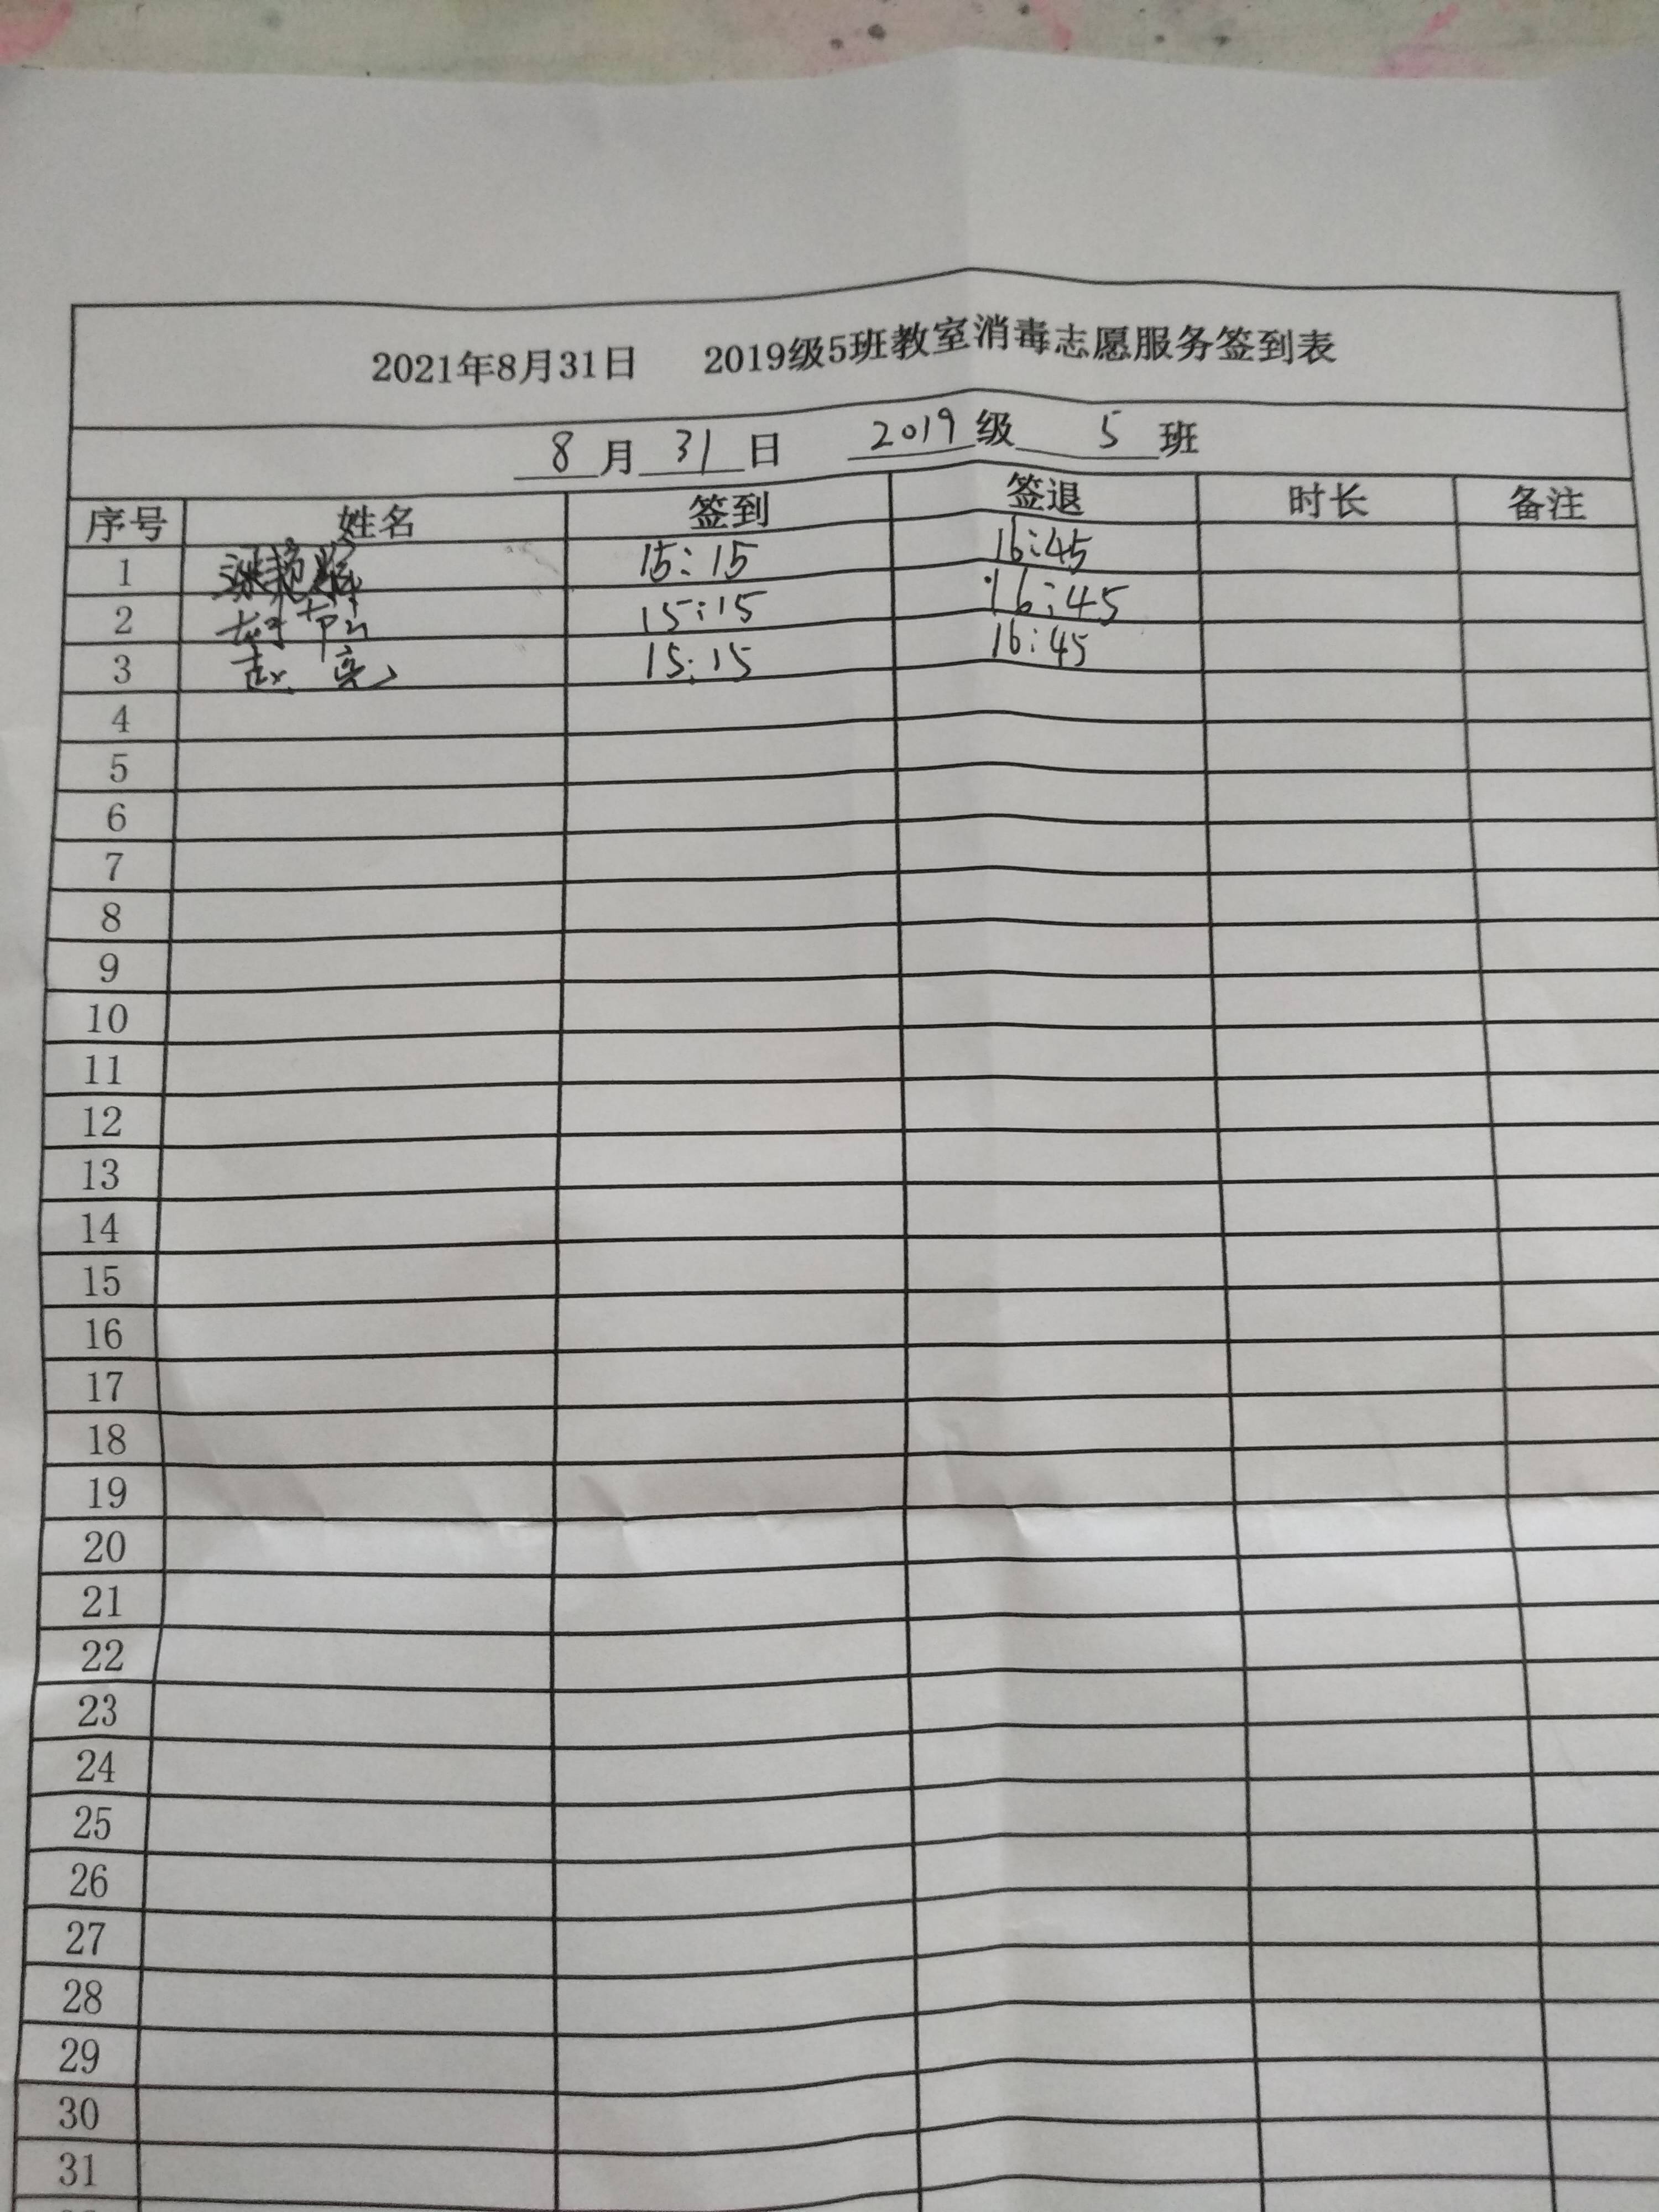 2021年8月31日 2019级5班教室消毒志愿服务签到表
8月31日 2019级5班
序号 姓名 签到 签退 时长 备注
1 15:15 16:45
2 15:15 16:45
3 赵亮 15:15 16:45
4
5
6
7
8
9
10
11
12
13
14
15
16
17
18
19
20
21
22
23
24
25
26
27
28
29
30
31